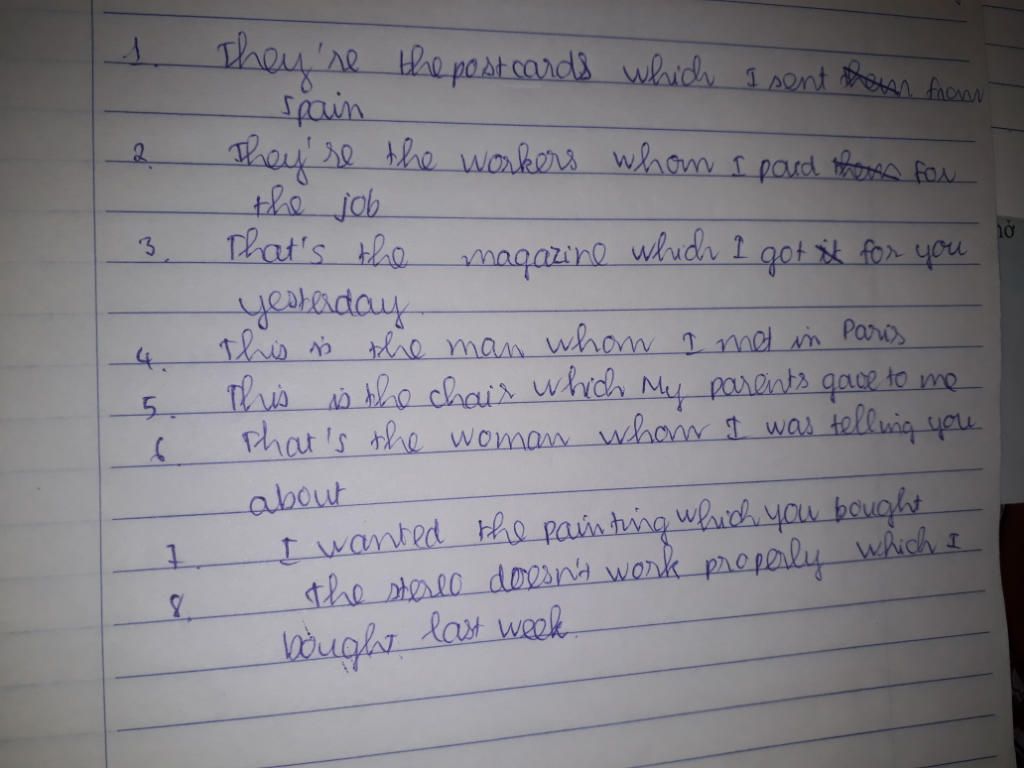 1. They're the postcards which I sent them from
spain
2. They're the workers whom I paid them for
the job
3. That's the magazine which I got it for you
yesterday
4. This is the man whom I met in Paris
5. This is the chair which My parents gave to me
6 That's the woman whom I was telling you
about
7. I wanted the painting which you bought
8. the stereo doesn't work properly which I
bought last week.